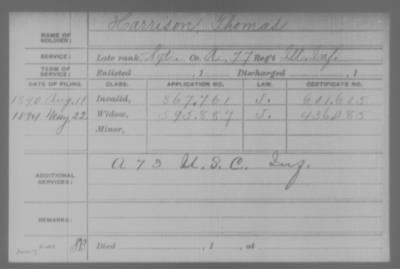 Harrison, Thomas
NAME OF SOLDIER:
SERVICE: Late rank, Sgt. Co. A, 77 Reg't Ill. Inf.
TERM OF SERVICE: Enlisted , 1 Discharged , 1
DATE OF FILING. CLASS. APPLICATION NO. LAW. CERTIFICATE NO.
1890 Aug. 11 Invalid, 867.761 J. 601.613
1894 May 22 Widow, 595.887 J. 436.083
Minor,
A 73 U.S.C. Inf.
ADDITIONAL SERVICES:
REMARKS:
Died , 1 , at